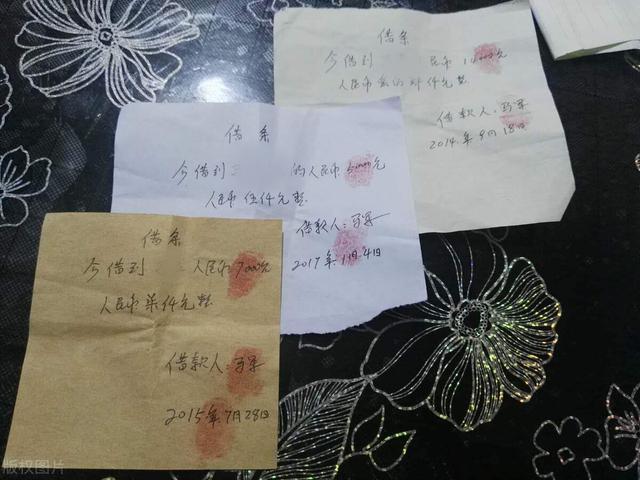 借条
今借到 民币
人民币 仟元整
借款人:马军
2014年9月18日
借条
今借到 的人民币5000元
人民币伍仟元整
借款人:马军
2017年1月4日
借条
今借到 人民币7000元
人民币柒仟元整
借款人:马军
2015年7月28日
版权图片